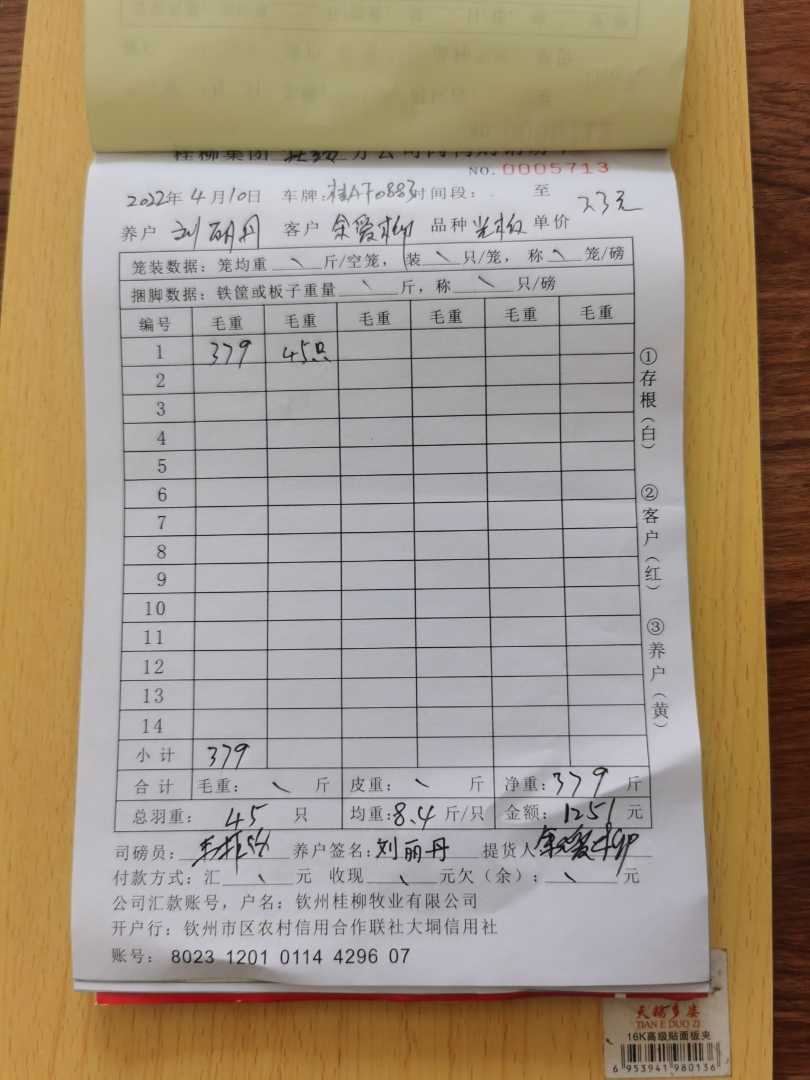 NO. 0005713
2022年4月10日 车牌:桂A70883 时间段: 至
养户 刘丽丹 客户 余爱柳 品种 单价 3.3元
笼装数据: 笼均重 \ 斤/空笼, 装 \ 只/笼, 称 \ 笼/磅
捆脚数据: 铁筐或板子重量 \ 斤, 称 \ 只/磅
编号 毛重 毛重 毛重 毛重 毛重 毛重
1 379 45只
2
3
4
5
6
7
8
9
10
11
12
13
14
小计 379
合计 毛重: \ 斤 皮重: \ 斤 净重: 379 斤
总羽重: 45 只 均重: 8.4 斤/只 金额: 1251 元
司磅员: 养户签名: 刘丽丹 提货人 余爱柳
付款方式: 汇 \ 元 收现 \ 元欠(余): \ 元
公司汇款账号, 户名: 钦州桂柳牧业有限公司
开户行: 钦州市区农村信用合作联社大垌信用社
账号: 8023 1201 0114 4296 07
①存根(白)
②客户(红)
③养户(黄)
天瑞多姿
TIAN E DUO ZI
16K高级贴面板夹
6 953941 980136